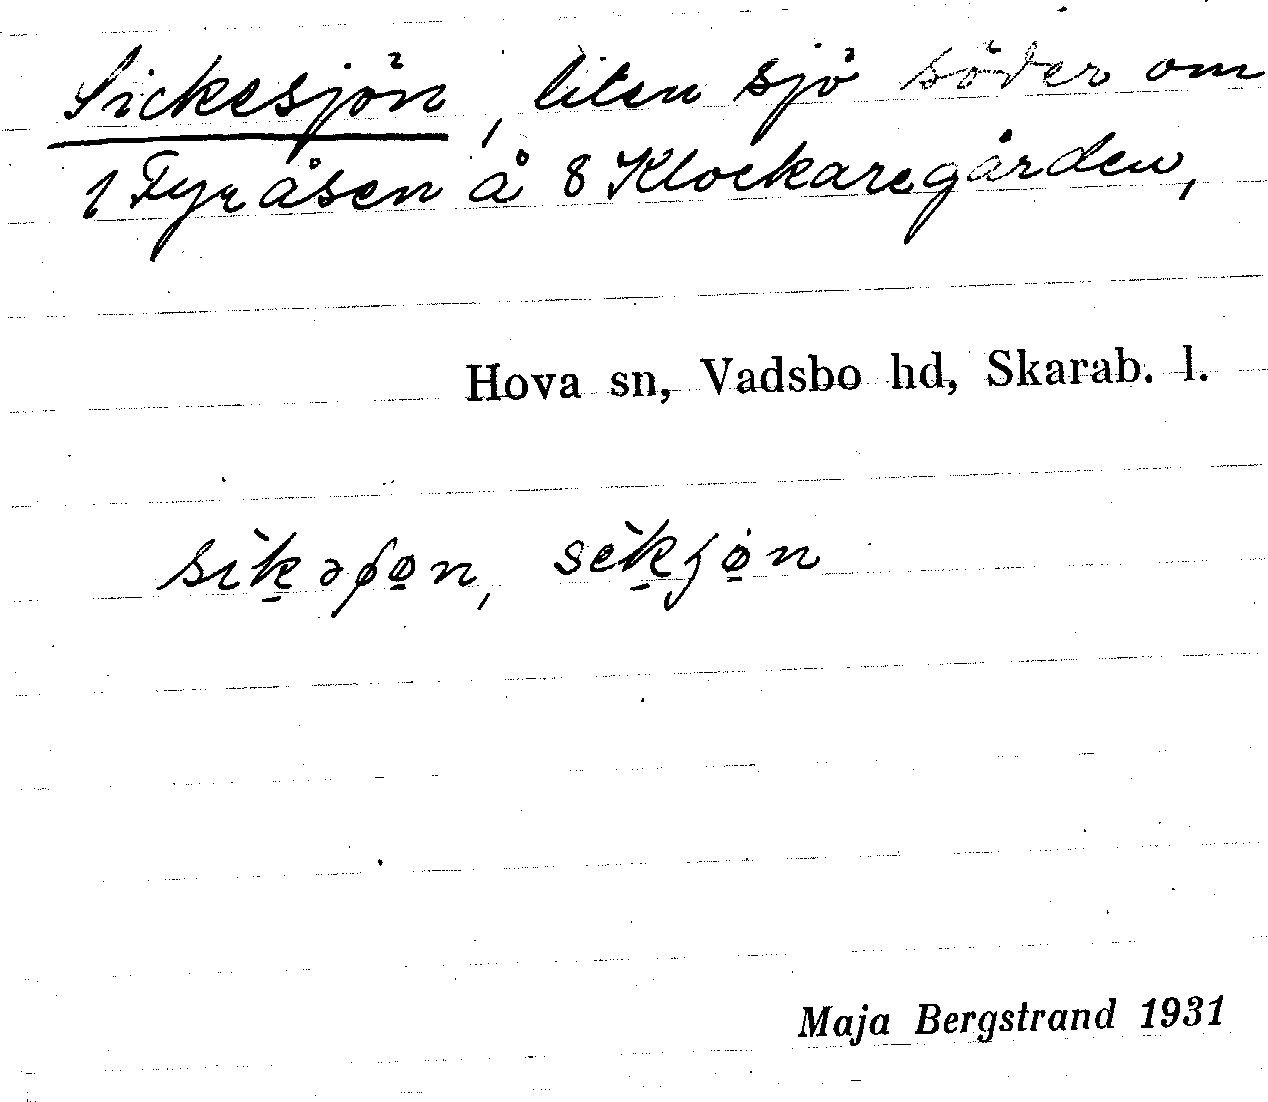 Sickesjön, liten sjö söder om
1 Fyråsen å 8 Klockaregården,
Hova sn, Vadsbo hd, Skarab. l.
Maja Bergstrand 1931